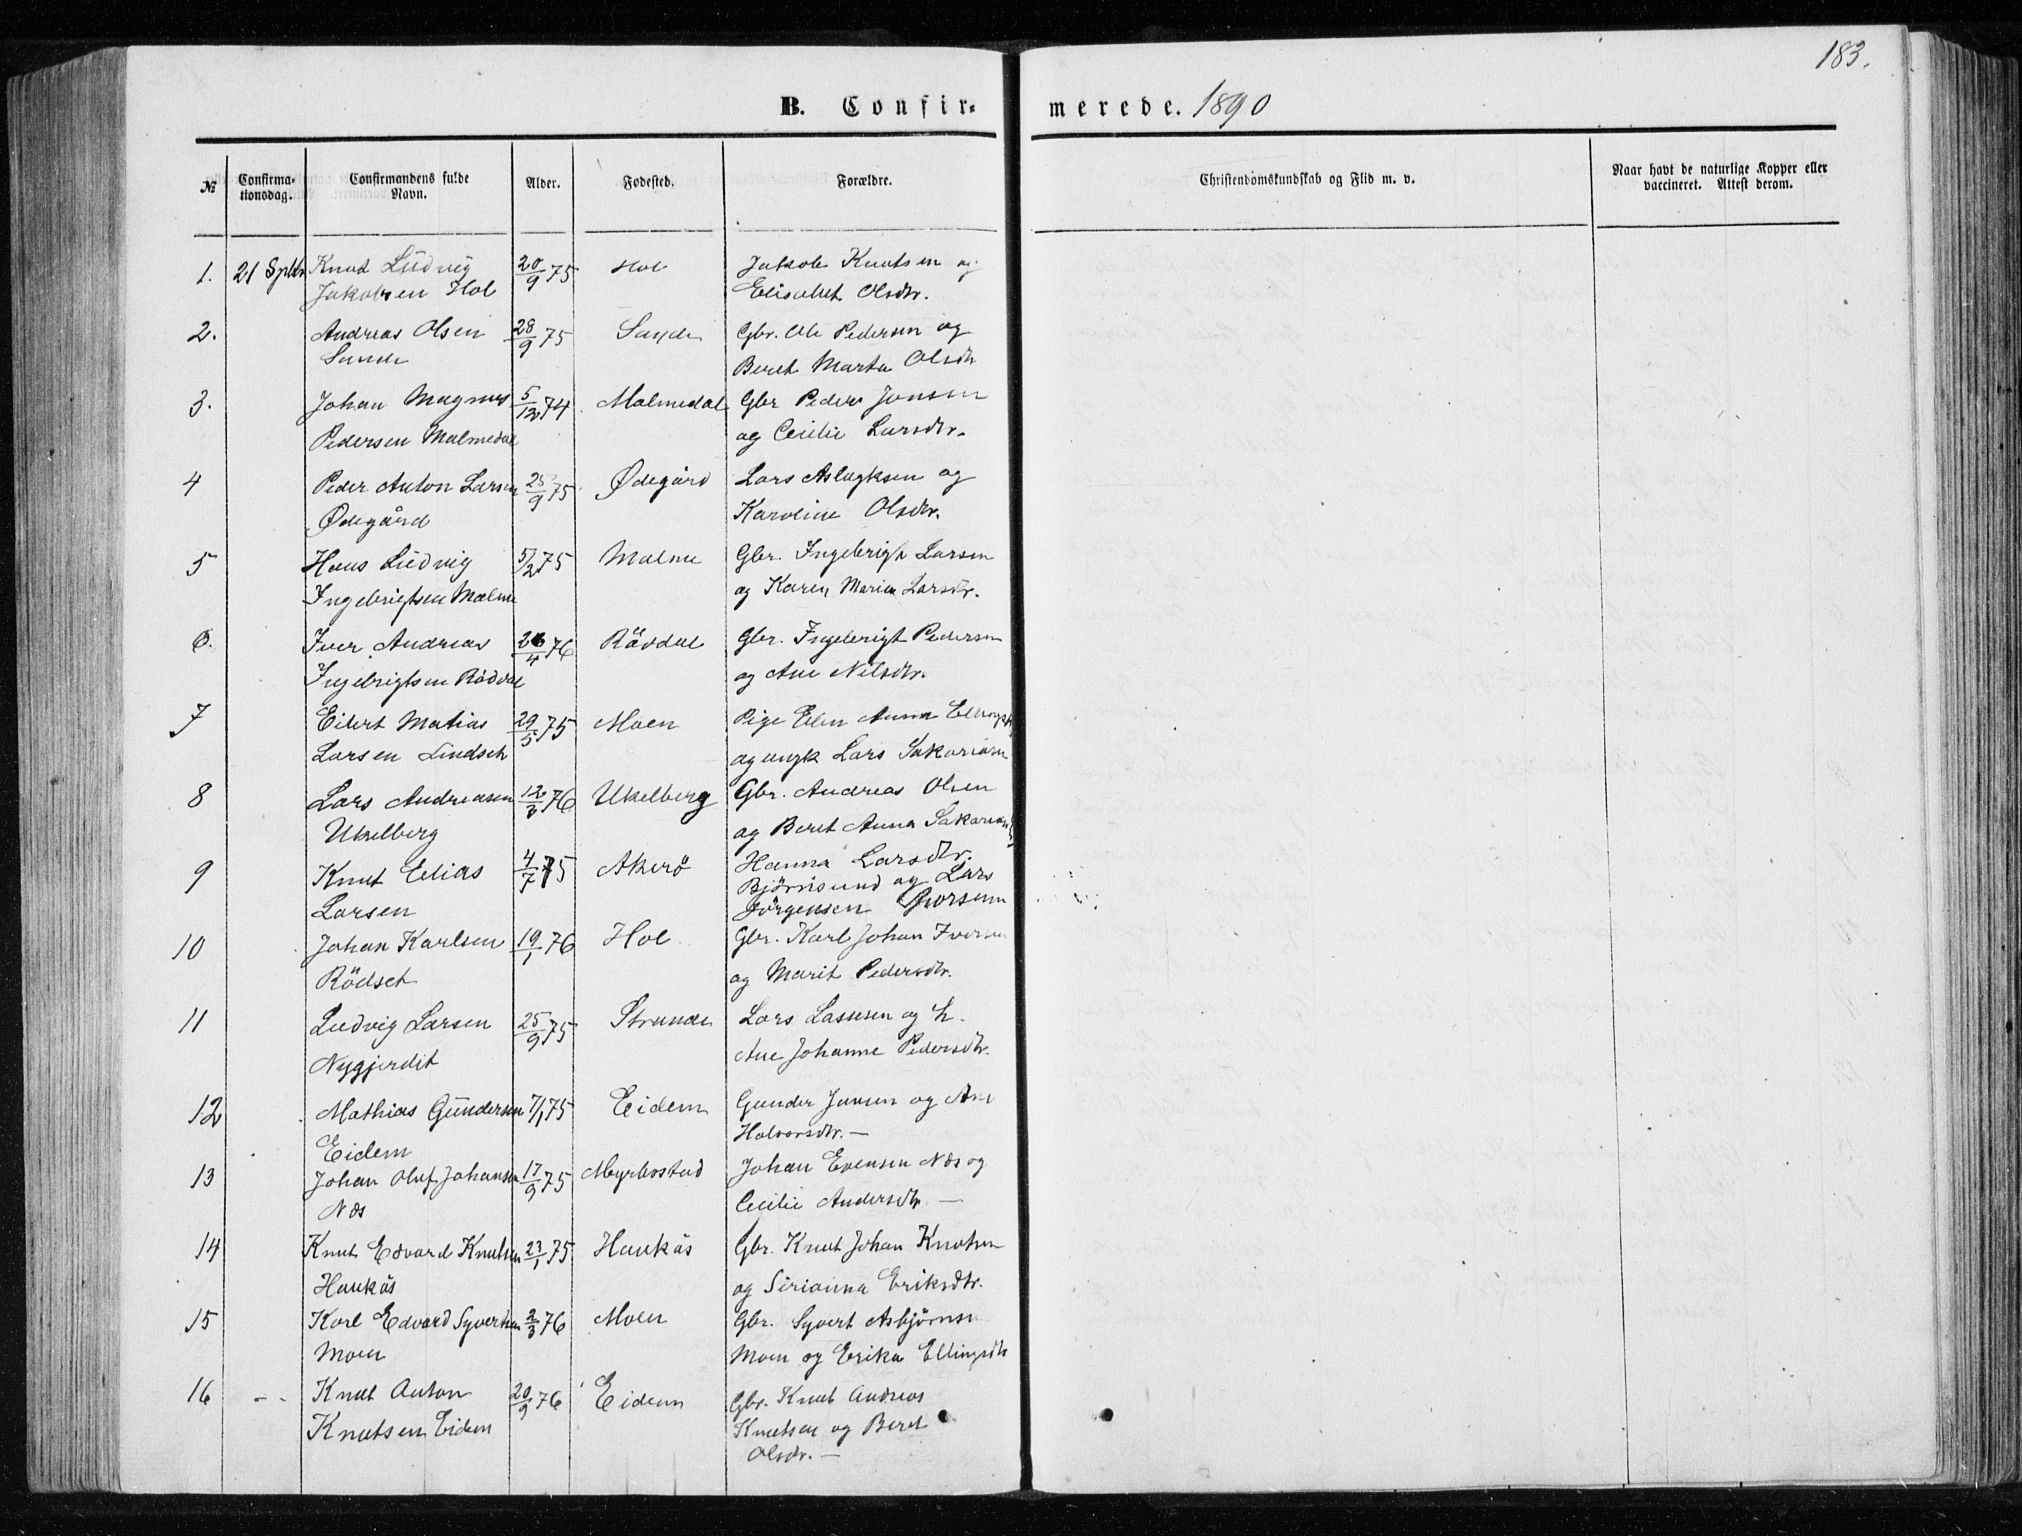 183.
B. Confir- merede. 1890
№ Confirma-tionsdag. Confirmandens fulde Navn. Alder. Fødested. Forældre. Christendomskundskab og Flid m. v. Naar havt de naturlige Kopper eller vaccineret. Attest derom.
1. 21 Sptbr Knut Ludvig 20/9 75 Hol Jakob Knutsen og
Jakobsen Hol Elisabet Olsdtr.
2. Andreas Olsen 28/9 75 Sunde Gbr. Ole Pedersen og
Sunde Beret Marta Olsdtr
3. Johan Magnus 5/12 74 Malmedal Gbr Peder Jonsen
Pedersen Malmedal og Cecilie Larsdtr.
4 Peder Anton Larsen 25/9 75 Ødegård Lars Aslagksen og
Ødegård Karoline Olsdtr.
5 Hans Ludvig 5/2 75 Malme Gbr. Ingebrigt Larsen
Ingebrigtsen Malme og Karen Maria Larsdtr.
6. Iver Andreas 26/4 76 Rövdal Gbr. Ingebrigt Pedersen
Ingebrigtsen Rödval og Ane Nilsdtr.
7 Eilert Matias 29/5 75 Moen Pige Elen Anna Ellingsdtr
Larsen Lindset og ungk Lars Sakariasen
8 Lars Andreasen 12/3 76 Ukelberg Gbr. Andreas Olsen
Ukelberg og Beret Anna Sakariasd
9 Knut Elias 4/7 75 Akerö Hanna Larsdtr.
Larsen Björnsund og Lars
Jörgensen
10 Johan Karlsen 19/1 76 Hol Gbr. Karl Johan Iversen
Rödset og Marit Pedersdtr.
11 Ludvig Larsen 25/9 75 Strande Lars Lassesen og h.
Nygjerdet Ane Johanne Pedersdtr.
12 Mathias Gundersen 7/1 75 Eidem Gunder Jensen og Ane
Eidem Halvorsdtr. —
13 Johan Oluf Johansen 17/9 75 Myrbostad Johan Evensen Næs og
Næs Cecilie Andersdtr —
14 Knut Edvard Knutsen 23/1 75 Haukås Gbr. Knut Johan Knutsen
Haukås og Sirianna Eriksdtr.
15 Karl Edvard Syvertsen 2/3 76 Moen Gbr. Syvert Asbjørnsen
Moen Moen og Erika Ellingsdtr
16 -- Knut Anton 20/9 76 Eidem Gbr. Knut Andreas
Knutsen Eidem Knutsen og Beret
Olsdtr. —